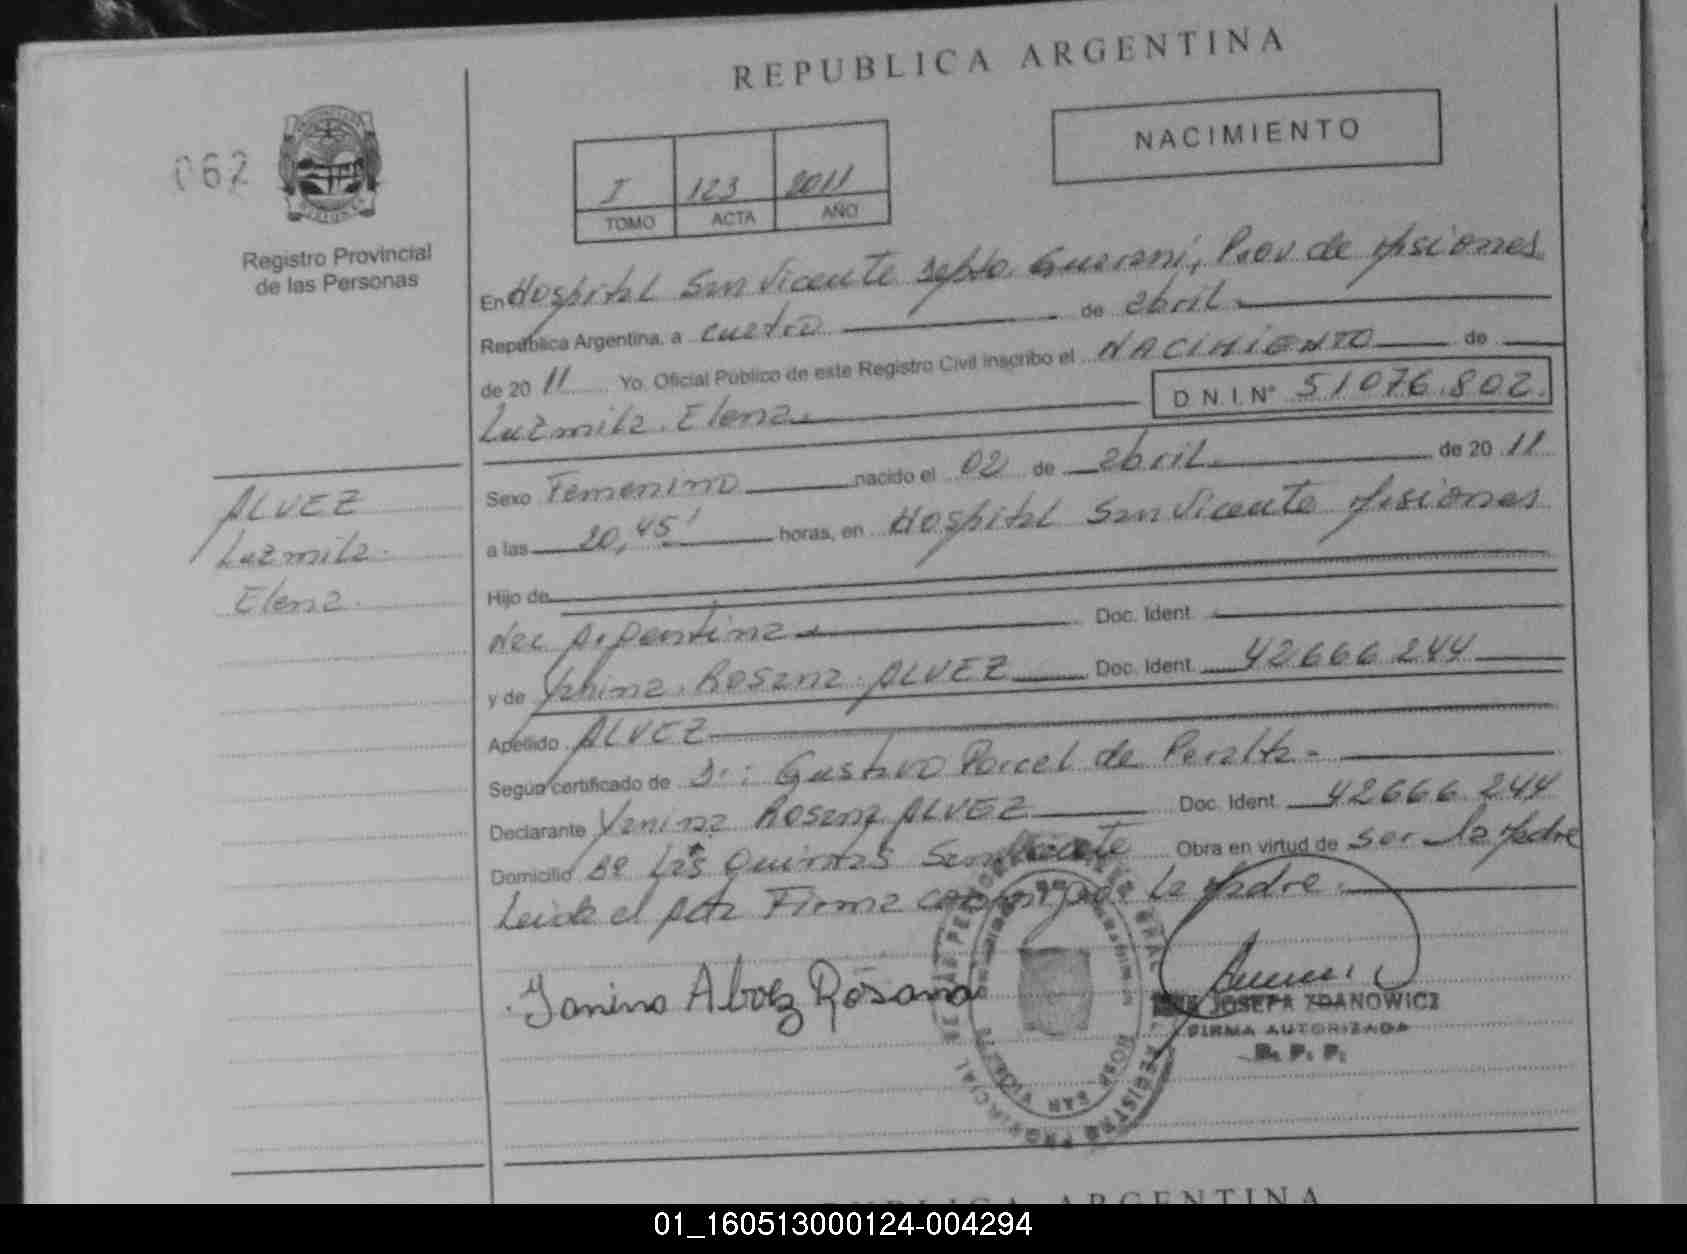 REPUBLICA ARGENTINA
062
Registro Provincial
de las Personas
I 123 2011
TOMO ACTA AÑO
NACIMIENTO
En Hospital San Vicente Depto. Guarani, Prov de Misiones
República Argentina, a cuatro de abril
de 20 11 Yo, Oficial Público de este Registro Civil inscribo el NACIMIENTO de
Luzmila Elena D.N.I.Nº 51076.802.
Sexo Femenino nacido el 02 de abril de 20 11
a las 20,45' horas, en Hospital San Vicente Misiones
Hijo de
Nac Argentina Doc. Ident.
y de Yanina Rosana ALVEZ Doc. Ident. 42666 244
Apellido ALVEZ
Según certificado de Dr: Gustavo Porcel de Peralta -
Declarante Yanina Rosana ALVEZ Doc. Ident. 42666 244
Domicilio Bº Las Quintas San Vicente Obra en virtud de ser la Madre
Leida el Acta Firma conmigo La Madre.
ALVEZ
Luzmila
Elena
Rosana
JOSEFA ZDANOWICZ
FIRMA AUTORIZADA
R. P. P.
REGISTRO PROVINCIAL DE LAS PERSONAS
HOSP SAN VICENTE
REPUBLICA ARGENTINA
01_160513000124-004294